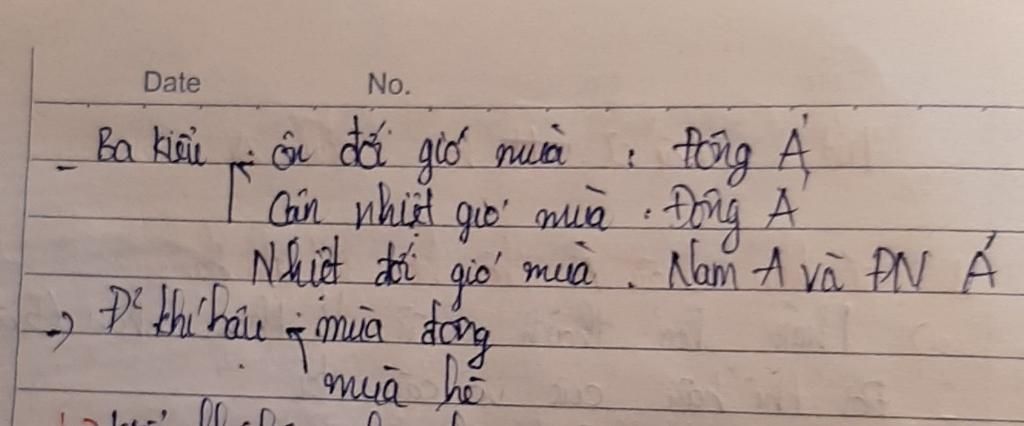 Date No.
- Ba kiểu : ôn đới gió mùa : Đông Á
Cận nhiệt gió mùa : Đông Á
Nhiệt đới gió mùa : Nam Á và ĐN Á
-> Đ² khí hậu : mùa đông
mùa hè